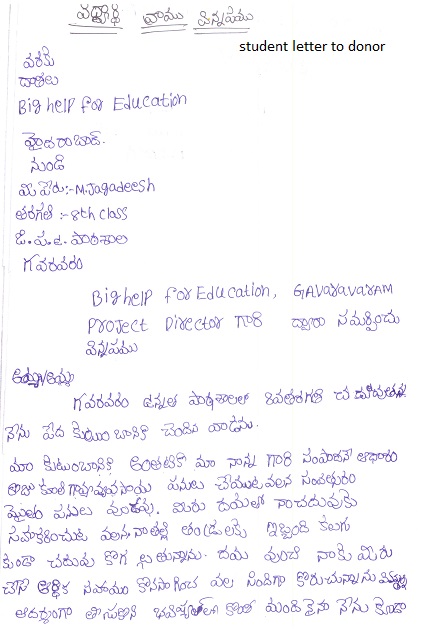 విద్యార్థి వ్రాయు విన్నపము
student letter to donor
దాతలు
Big help for Education
హైదరాబాద్.
నుండి
మి పేరు:- M.Jagadeesh
తరగతి :- 8th class
జి.ప.ఉ. పాఠశాల
గవరవరం
Big help for Education, GAVaravaRAM
PROJECT Director గారి ద్వారా సమర్పించు
విన్నపము
గవరవరం ఉన్నత పాఠశాలలో 8వతరగతి
నేను పేద కుటుంబానికి చెందిన వాడను.
మా కుటుంబానికి అంతటికి మా నాన్న గారి సంపాదనే ఆధారం
పనులు చేయుట వలన సంవత్సరం
పనులు వుండవు. మీరు దయతో నాచదువుకు
సహకరించుట వలన నాతల్లి తండ్రులకు ఇబ్బంది కలుగ
కుండా చదువు కొన గల్గుతున్నాను. దయ వుంచి నాకు మీరు
చేసే ఆర్థిక సహాయం కొనసాగించ వల సిందిగా కోరుచున్నాను
ఆదర్శంగా తీసుకొని భవిష్యత్ లో కొంత మంది కైనా నేను కూడా